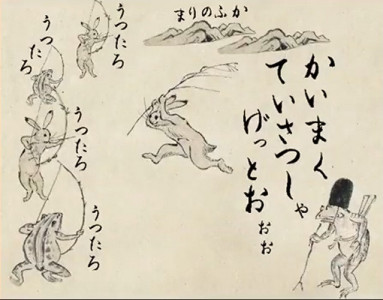 まりのふか
かいまく
ていさつしゃ
げっとおおお
うつたろ
うつたろ
うつたろ
うつたろ